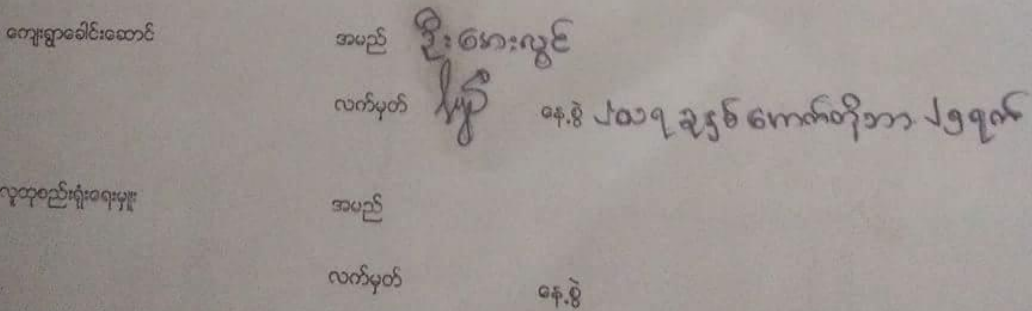 ကျေးရွာခေါင်းဆောင် အမည် ဦးအေးလွင်
လက်မှတ် နေ့စွဲ ၂၀၁၇ ခုနှစ် အောက်တိုဘာ ၂၅ ရက်
လူထုစည်းရုံးရေးမှူး အမည်
လက်မှတ် နေ့စွဲ